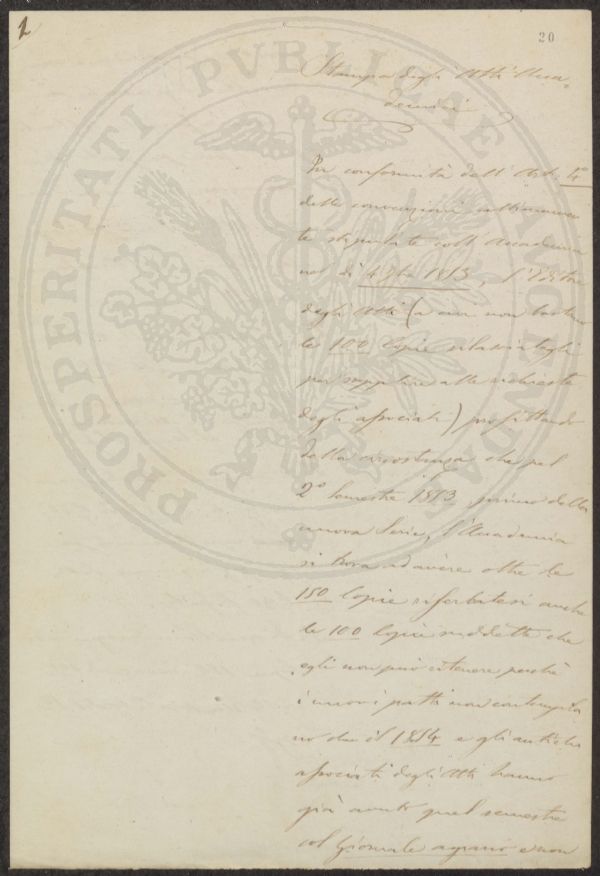 1
20
Stampa degli Atti Acca-
demici
Per conformità dell' Art. 4º
delle convenzioni ultimamen
te stipulate coll' Accademia
nel dì 4 1853, l'Editore
degli Atti (a cui non bastano
le 100 Copie rilasciategli
per supplire alle richieste
degli associati) profittando
della circostanza che pel
2º Semestre 1853, primo della
nuova Serie, l'Accademia
si trova ad avere oltre le
150 Copie riserbatesi anche
le 100 Copie suddette che
egli non può ritenere perchè
i nuovi patti non contempla
no che il 1854 e gli antichi
associati degli Atti hanno
già avuto quel semestre
col Giornale agrario e non
PROSPERITATI PVBLICAE AVGENDAE